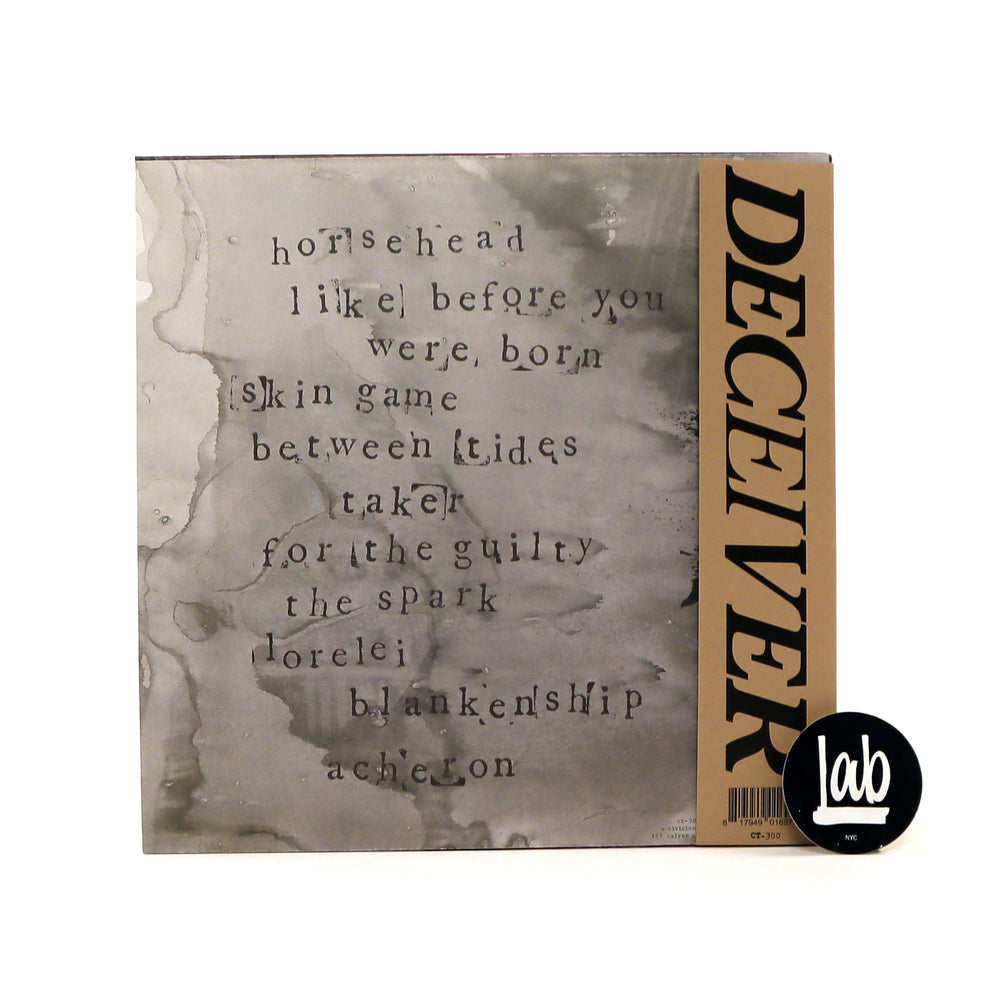 horsehead
like before you
were born
skin game
between tides
taker
for the guilty
the spark
lorelei
blankenship
acheron
DECEIVER
CT-300
Lab
NYC